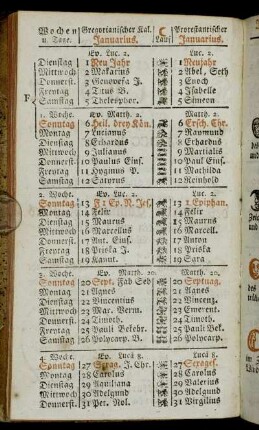 Wochen Gregorianischer Kal. ☾ Protestantischer
u. Tage. Januarius. Lauf Januarius.
Ev. Luc. 2. Luc. 2.
Dienstag 1 Neu Jahr 1 Neujahr
Mittwoch 2 Makarius 2 Abel, Seth
Donnerst. 3 Genovefa J. 3 Enoch
Freytag 4 Titus B. 4 Isabelle
Samstag 5 Thelesphor. 5 Simeon
1. Woche. Ev. Matth. 2. Matth. 2.
Sonntag 6 Heil. drey Kön. 6 Ersch. Chr.
Montag 7 Lucianus 7 Raymund
Dienstag 8 Erhardus 8 Erhardus
Mittwoch 9 Julianus 9 Martialis
Donnerst. 10 Paulus Eins. 10 Paul Eins.
Freytag 11 Hyginus P. 11 Mathilda
Samstag 12 Satyrus 12 Reinhold
2. Woche. Ev. Luc. 2. Luc. 2.
Sonntag 13 F 1 Ep. N. Jes. 13 1 Epiphan.
Montag 14 Felix 14 Felix
Dienstag 15 Maurus 15 Maurus
Mittwoch 16 Marcellus 16 Marcell.
Donnerst. 17 Ant. Eins. 17 Anton
Freytag 18 Priska 18 Priska
Samstag 19 Kanut. 19 Sara
3. Woche. Ev. Matth. 20. Matth. 20.
Sonntag 20 Sept. Fab Seb 20 Septuag.
Montag 21 Agnes 21 Agnes
Dienstag 22 Vincentius 22 Vincenz.
Mittwoch 23 Mar. Verm. 23 Emerent.
Donnerst. 24 Timoth. 24 Timoth.
Freytag 25 Pauli Bekehr. 25 Pauli Bek.
Samstag 26 Polycarp. B. 26 Polycarp.
4. Woche. Ev. Lucä 8. Lucä 8.
Sonntag 27 Sexag. J. Chr. 27 Sexages.
Montag 28 Carolus 28 Carolus
Dienstag 29 Aquilina 29 Valerius
Mittwoch 30 Adelgund 30 Adelgund
Donnerst. 31 Pet. Nol. 31 Virgilius